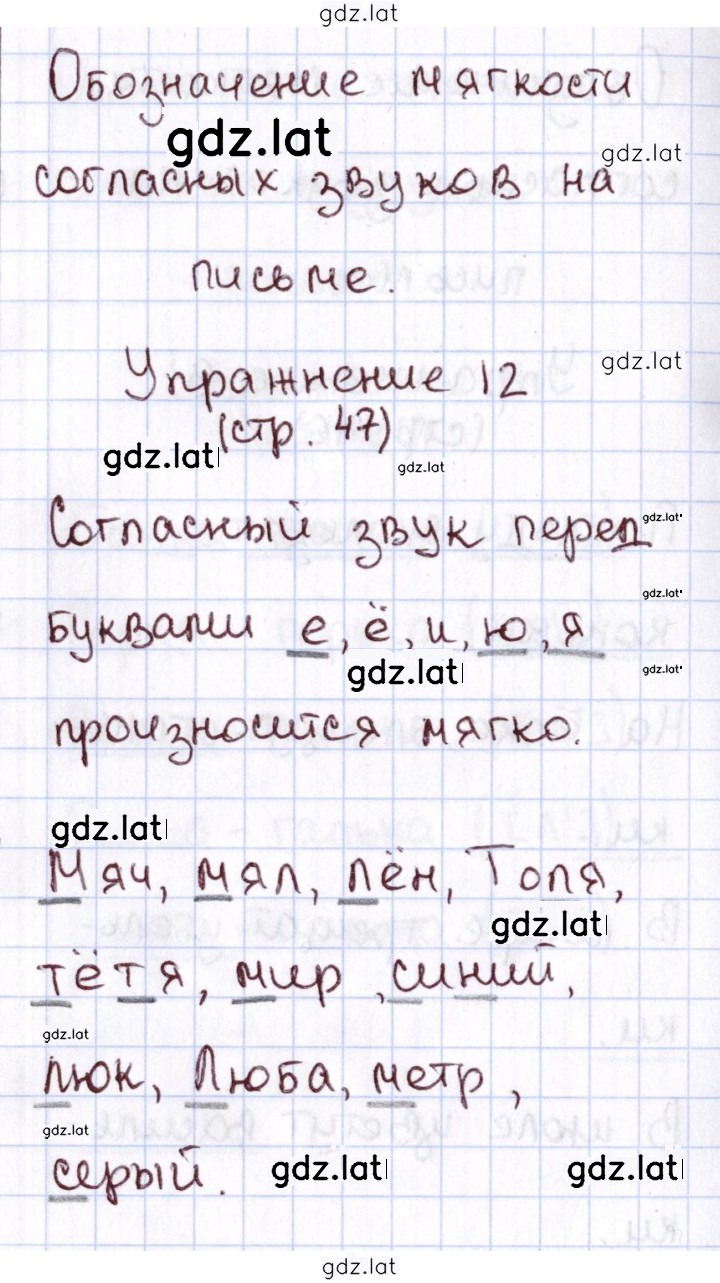 gdz.lat
Обозначение мягкости
gdz.lat
gdz.lat
согласных звуков на
письме.
gdz.lat
Упражнение 12
(стр. 47)
gdz.lat
gdz.lat
gdz.lat
Согласный звук перед
gdz.lat
буквами е, ё, и, ю, я
gdz.lat
gdz.lat
произносится мягко.
gdz.lat
Мяч, мял, лён, Толя,
gdz.lat
тётя, мир, синий,
gdz.lat
люк, Люба, метр,
gdz.lat
серый.
gdz.lat
gdz.lat
gdz.lat